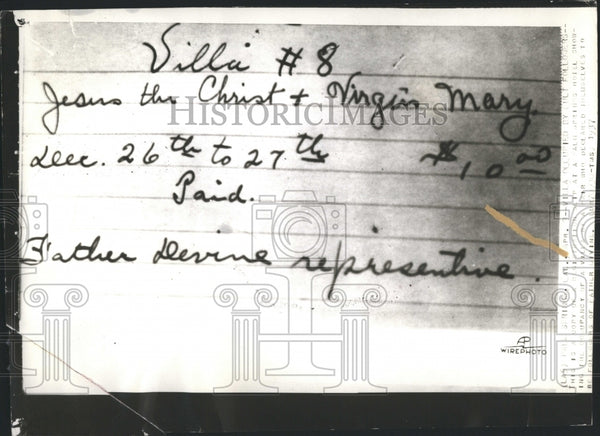 Villa # 8
Jesus the Christ + Virgin Mary.
HISTORIC IMAGES
Dec. 26th to 27th $10.00
Paid.
Father Devine representive.
AP
WIREPHOTO